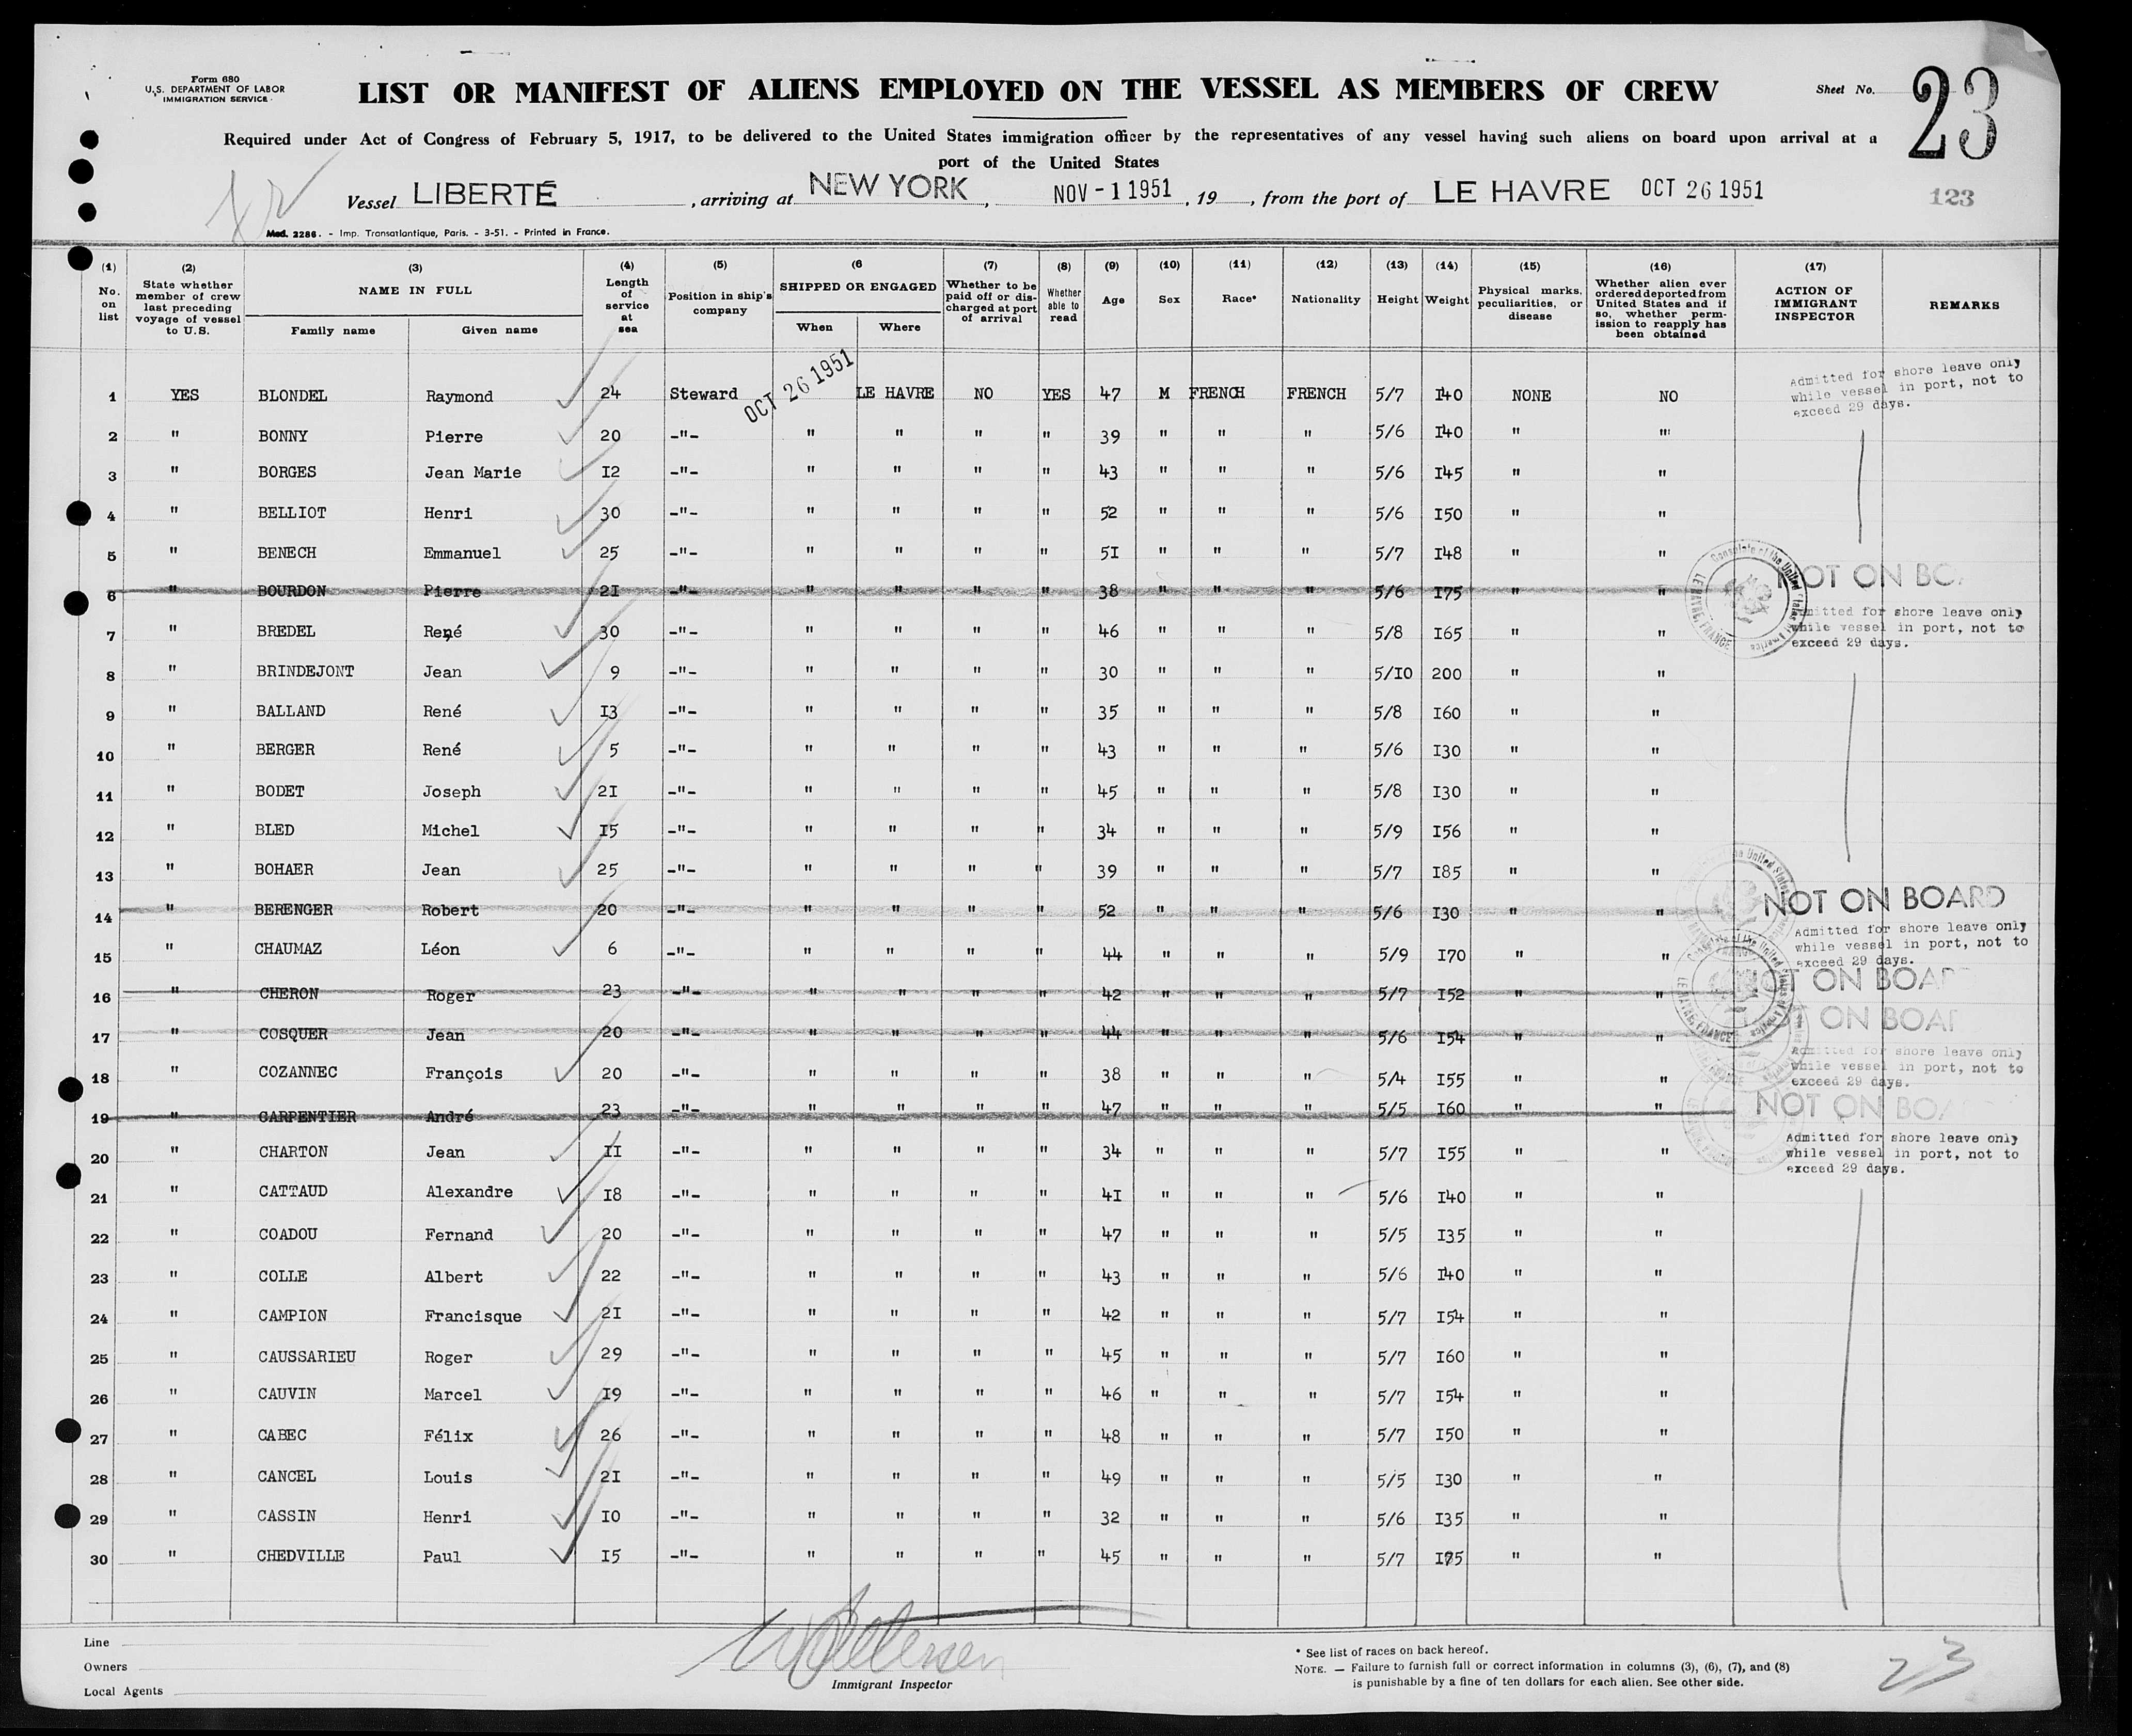 Form 680
U.S. DEPARTMENT OF LABOR
IMMIGRATION SERVICE
LIST OR MANIFEST OF ALIENS EMPLOYED ON THE VESSEL AS MEMBERS OF CREW
Sheet No. 23
Required under Act of Congress of February 5, 1917, to be delivered to the United States immigration officer by the representatives of any vessel having such aliens on board upon arrival at a
port of the United States
Vessel LIBERTÉ , arriving at NEW YORK , NOV - 1 1951 , 19 , from the port of LE HAVRE OCT 26 1951
123
Mod. 2286. - Imp. Transatlantique, Paris. - 3-51. - Printed in France.
(1) No. on list
(2) State whether member of crew last preceding voyage of vessel to U.S.
(3) NAME IN FULL Family name Given name
(4) Length of service at sea
(5) Position in ship's company
(6 SHIPPED OR ENGAGED When Where
(7) Whether to be paid off or discharged at port of arrival
(8) Whether able to read
(9) Age
(10) Sex
(11) Race*
(12) Nationality
(13) Height
(14) Weight
(15) Physical marks, peculiarities, or disease
(16) Whether alien ever ordered deported from United States and if so, whether permission to reapply has been obtained
(17) ACTION OF IMMIGRANT INSPECTOR
REMARKS
1 YES BLONDEL Raymond 24 Steward OCT 26 1951 LE HAVRE NO YES 47 M FRENCH FRENCH 5/7 I40 NONE NO
Admitted for shore leave only
while vessel in port, not to
exceed 29 days.
2 " BONNY Pierre 20 -"- " " " " 39 " " " 5/6 I40 " "
3 " BORGES Jean Marie I2 -"- " " " " 43 " " " 5/6 I45 " "
4 " BELLIOT Henri 30 -"- " " " " 52 " " " 5/6 I50 " "
5 " BENECH Emmanuel 25 -"- " " " " 5I " " " 5/7 I48 " "
6 " BOURDON Pierre 2I -"- " " " " 38 " " " 5/6 I75 " "
Consulate of the United States of America
LE HAVRE, FRANCE
NOT ON BOA
Admitted for shore leave only
while vessel in port, not to
exceed 29 days.
7 " BREDEL René 30 -"- " " " " 46 " " " 5/8 I65 " "
8 " BRINDEJONT Jean 9 -"- " " " " 30 " " " 5/I0 200 " "
9 " BALLAND René I3 -"- " " " " 35 " " " 5/8 I60 " "
10 " BERGER René 5 -"- " " " " 43 " " " 5/6 I30 " "
11 " BODET Joseph 2I -"- " " " " 45 " " " 5/8 I30 " "
12 " BLED Michel I5 -"- " " " " 34 " " " 5/9 I56 " "
13 " BOHAER Jean 25 -"- " " " " 39 " " " 5/7 I85 " "
14 " BERENGER Robert 20 -"- " " " " 52 " " " 5/6 I30 " " NOT ON BOARD
15 " CHAUMAZ Léon 6 -"- " " " " 44 " " " 5/9 I70 " "
Admitted for shore leave only
while vessel in port, not to
exceed 29 days.
16 " CHERON Roger 23 -"- " " " " 42 " " " 5/7 I52 " " NOT ON BOARD
17 " COSQUER Jean 20 -"- " " " " 44 " " " 5/6 I54 " " NOT ON BOAR
18 " COZANNEC François 20 -"- " " " " 38 " " " 5/4 I55 " "
Admitted for shore leave only
while vessel in port, not to
exceed 29 days.
19 " CARPENTIER André 23 -"- " " " " 47 " " " 5/5 I60 " " NOT ON BOA
20 " CHARTON Jean II -"- " " " " 34 " " " 5/7 I55 " "
Admitted for shore leave only
while vessel in port, not to
exceed 29 days.
21 " CATTAUD Alexandre I8 -"- " " " " 4I " " " 5/6 I40 " "
22 " COADOU Fernand 20 -"- " " " " 47 " " " 5/5 I35 " "
23 " COLLE Albert 22 -"- " " " " 43 " " " 5/6 I40 " "
24 " CAMPION Francisque 2I -"- " " " " 42 " " " 5/7 I54 " "
25 " CAUSSARIEU Roger 29 -"- " " " " 45 " " " 5/7 I60 " "
26 " CAUVIN Marcel I9 -"- " " " " 46 " " " 5/7 I54 " "
27 " CABEC Félix 26 -"- " " " " 48 " " " 5/7 I50 " "
28 " CANCEL Louis 2I -"- " " " " 49 " " " 5/5 I30 " "
29 " CASSIN Henri I0 -"- " " " " 32 " " " 5/6 I35 " "
30 " CHEDVILLE Paul I5 -"- " " " " 45 " " " 5/7 I75 " "
Line
Owners
Local Agents
Immigrant Inspector
* See list of races on back hereof.
NOTE. — Failure to furnish full or correct information in columns (3), (6), (7), and (8)
is punishable by a fine of ten dollars for each alien. See other side.
23